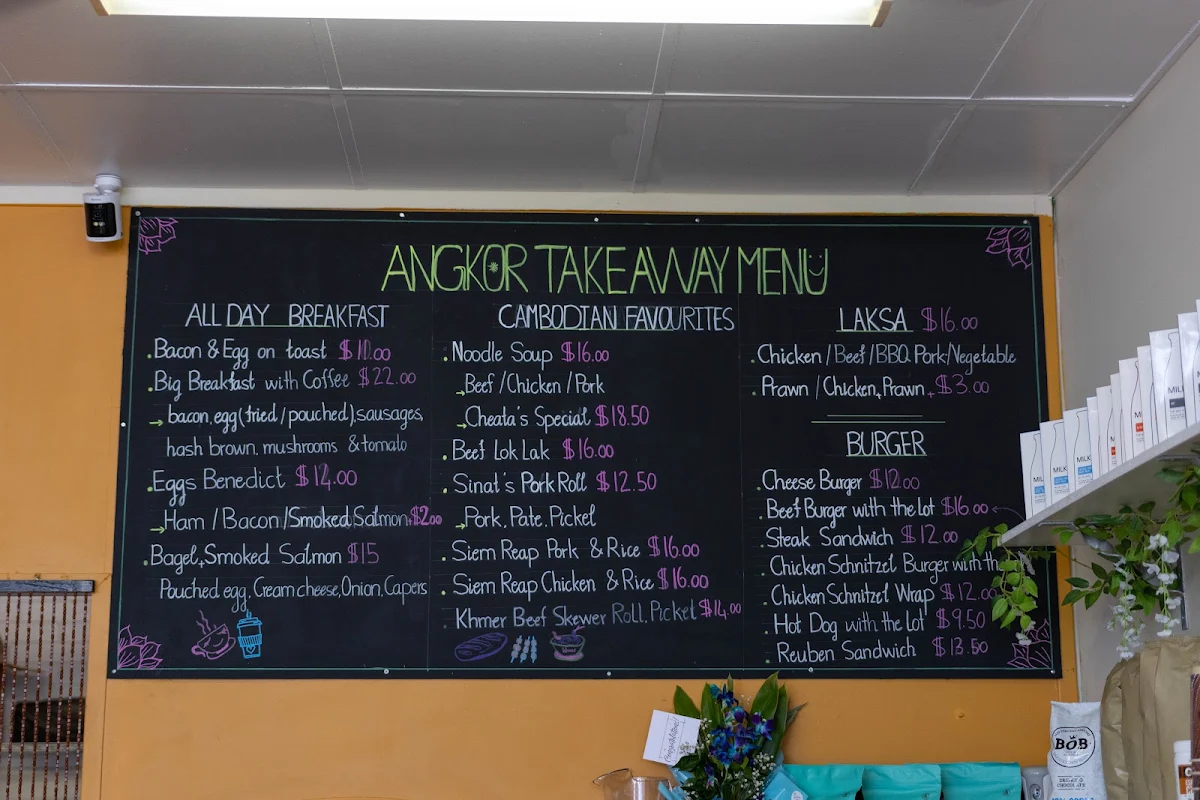 ANGKOR TAKEAWAY MENU
ALL DAY BREAKFAST
Bacon & Egg on toast $10.00
Big Breakfast with Coffee $22.00
bacon, egg (fried / pouched), sausages,
hash brown, mushrooms & tomato
Eggs Benedict $14.00
Ham / Bacon / Smoked Salmon +$2.00
Bagel, Smoked Salmon $15
Pouched egg, Cream cheese, Onion, Capers
CAMBODIAN FAVOURITES
Noodle Soup $16.00
Beef / Chicken / Pork
Cheata's Special $18.50
Beef Lok Lak $16.00
Sinat's Pork Roll $12.50
Pork, Pate, Pickel
Siem Reap Pork & Rice $16.00
Siem Reap Chicken & Rice $16.00
Khmer Beef Skewer Roll, Picket $14.00
LAKSA $16.00
Chicken / Beef / BBQ Pork / Vegetable
Prawn / Chicken + Prawn + $3.00
BURGER
Cheese Burger $12.00
Beef Burger with the lot $16.00
Steak Sandwich $12.00
Chicken Schnitzel Burger with th
Chicken Schnitzel Wrap $12.00
Hot Dog with the Lot $9.50
Reuben Sandwich $13.50
MILK
MILK
MILK
BOB